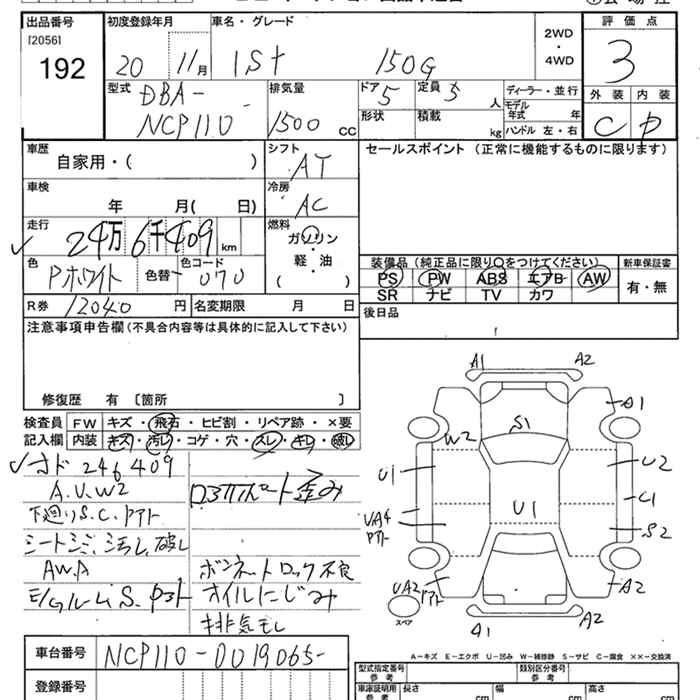 出品番号 初度登録年月 車名・グレード 評価点
[2056]
192
20 11月 1st 150G
2WD
・
4WD
3
型式 排気量 ドア 定員 外装 内装
DBA-
NCP110
1500 CC
5
5 人
形状 積載 kg
ディーラー・並行
モデル
年式 年
ハンドル 左・右
C D
車歴 シフト セールスポイント (正常に機能するものに限ります)
自家用・( )
AT
車検 冷房
年 月( 日)
AC
走行 燃料
24万6千409 km
ガソリン
・
軽・油
( )
装備品(純正品に限り○をつけてください) 新車保証書
PS PW ABS エアB AW
SR ナビ TV カワ
有・無
色 色替 色コード
Pホワイト 070
R券 12040 円 名変期限 月 日
後日品
注意事項申告欄(不具合内容等は具体的に記入して下さい)
修復歴 有 [箇所 ]
検査員
記入欄
FW キズ・飛石・ヒビ割・リペア跡・×要
内装 キズ・汚レ・コゲ・穴・スレ・キレ・破レ
246409
A.U.W2
下廻りS.C.
シート 汚レ 破レ
AW.A
歪み
ボンネットロック不良
オイルにじみ
排気モレ
A1 A2
A1
S1
W2
U1 U2
U1
C1
S2
A2
UA2
A1 A2
スペア
A-キズ E-エクボ U-凹み W-補修跡 S-サビ C-腐食 ××-交換済
車台番号 NCP110-0019065-
登録番号
型式指定番号
参考
類別区分番号
参考
車庫証明用
参考
長さ cm 幅 cm 高さ cm